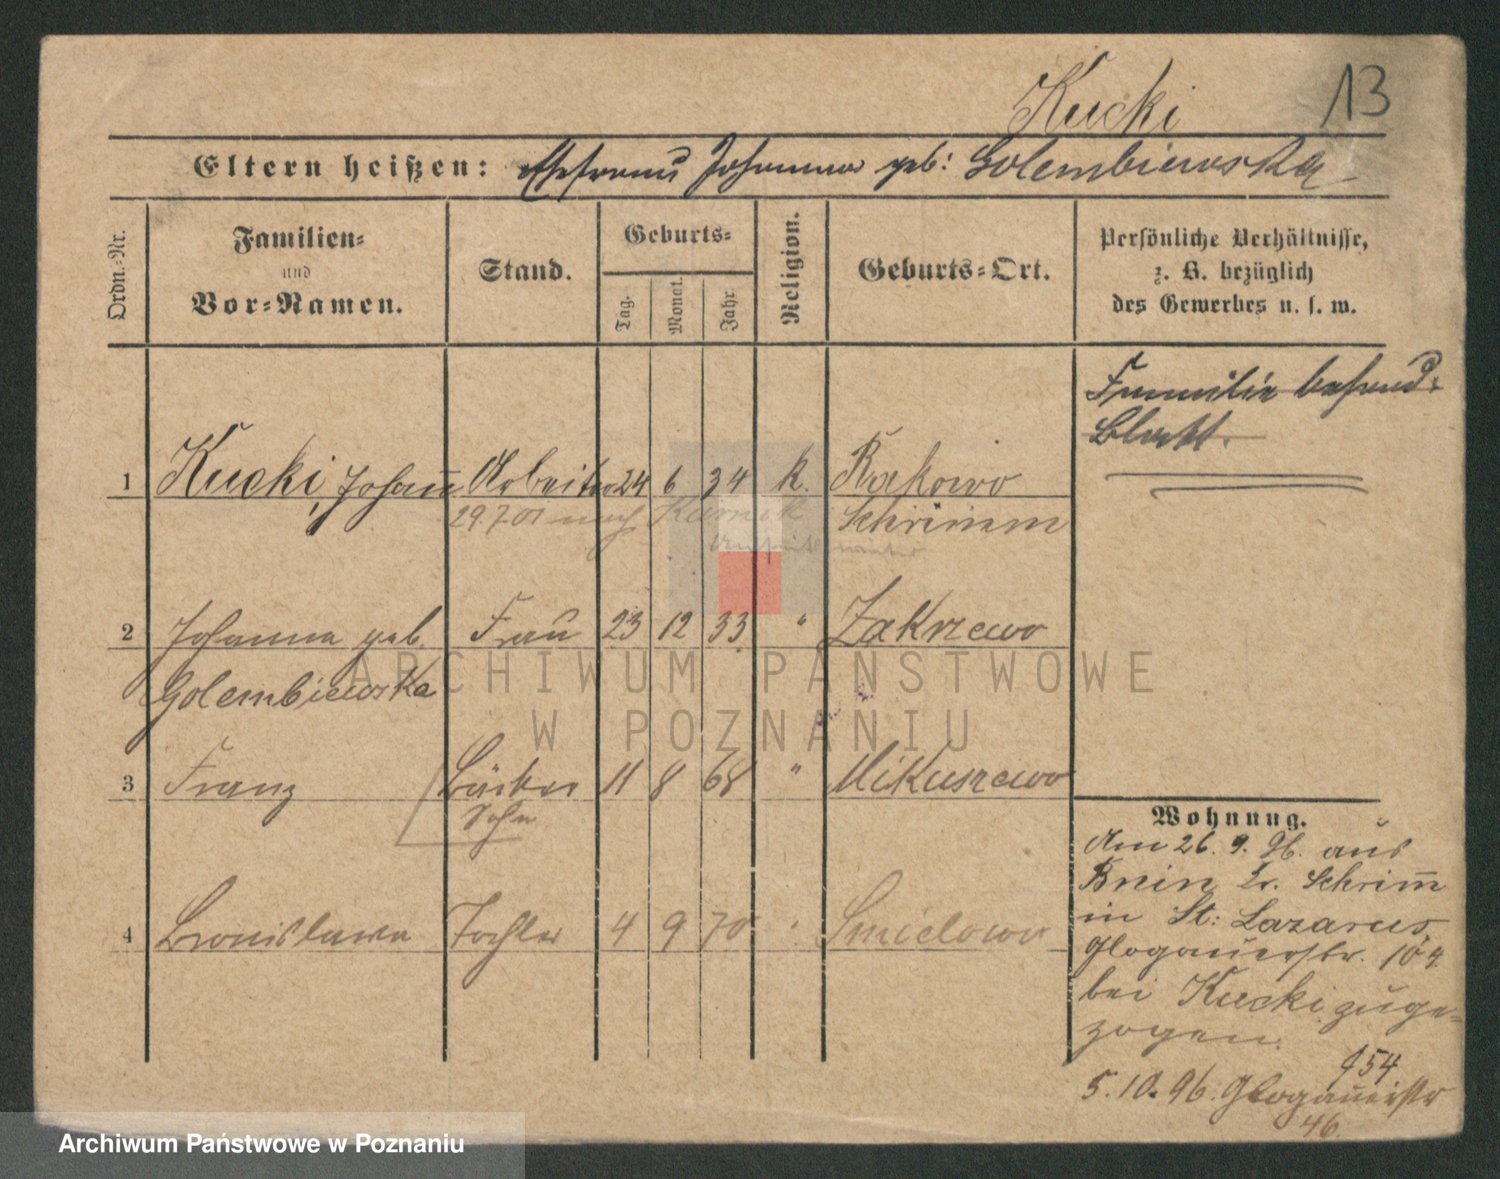 Kucki
13
Eltern heißen: Ehefrau Johanna geb: Golembiewska
Ordn.-Nr.
Familien-
und
Vor-Namen.
Stand.
Geburts-
Tag.
Monat.
Jahr
Religion.
Geburts-Ort.
Persönliche Verhältnisse,
z. B. bezüglich
des Gewerbes u. s. w.
Familie besond.
Blatt.
1 Kucki, Johann Arbeiter 24 6 34 k. Rakowo
29.7.01 nach Kurnik Schrimm
2 Johanna geb. Frau 23 12 33 " Zakrzewo
Golembiewska
3 Franz Bäcker 11 8 68 " Mikuszewo
Sohn
4 Bronislawa Tochter 4 9 70 " Smielowo
Wohnung.
Am 26. 9. 96. aus
Bnin Kr. Schrimm
in St: Lazarus,
Glogauerstr. 104
bei Kucki zuge-
zogen.
954
5. 10. 96. Glogauerstr
46.
ARCHIWUM PAŃSTWOWE
W POZNANIU
Archiwum Państwowe w Poznaniu